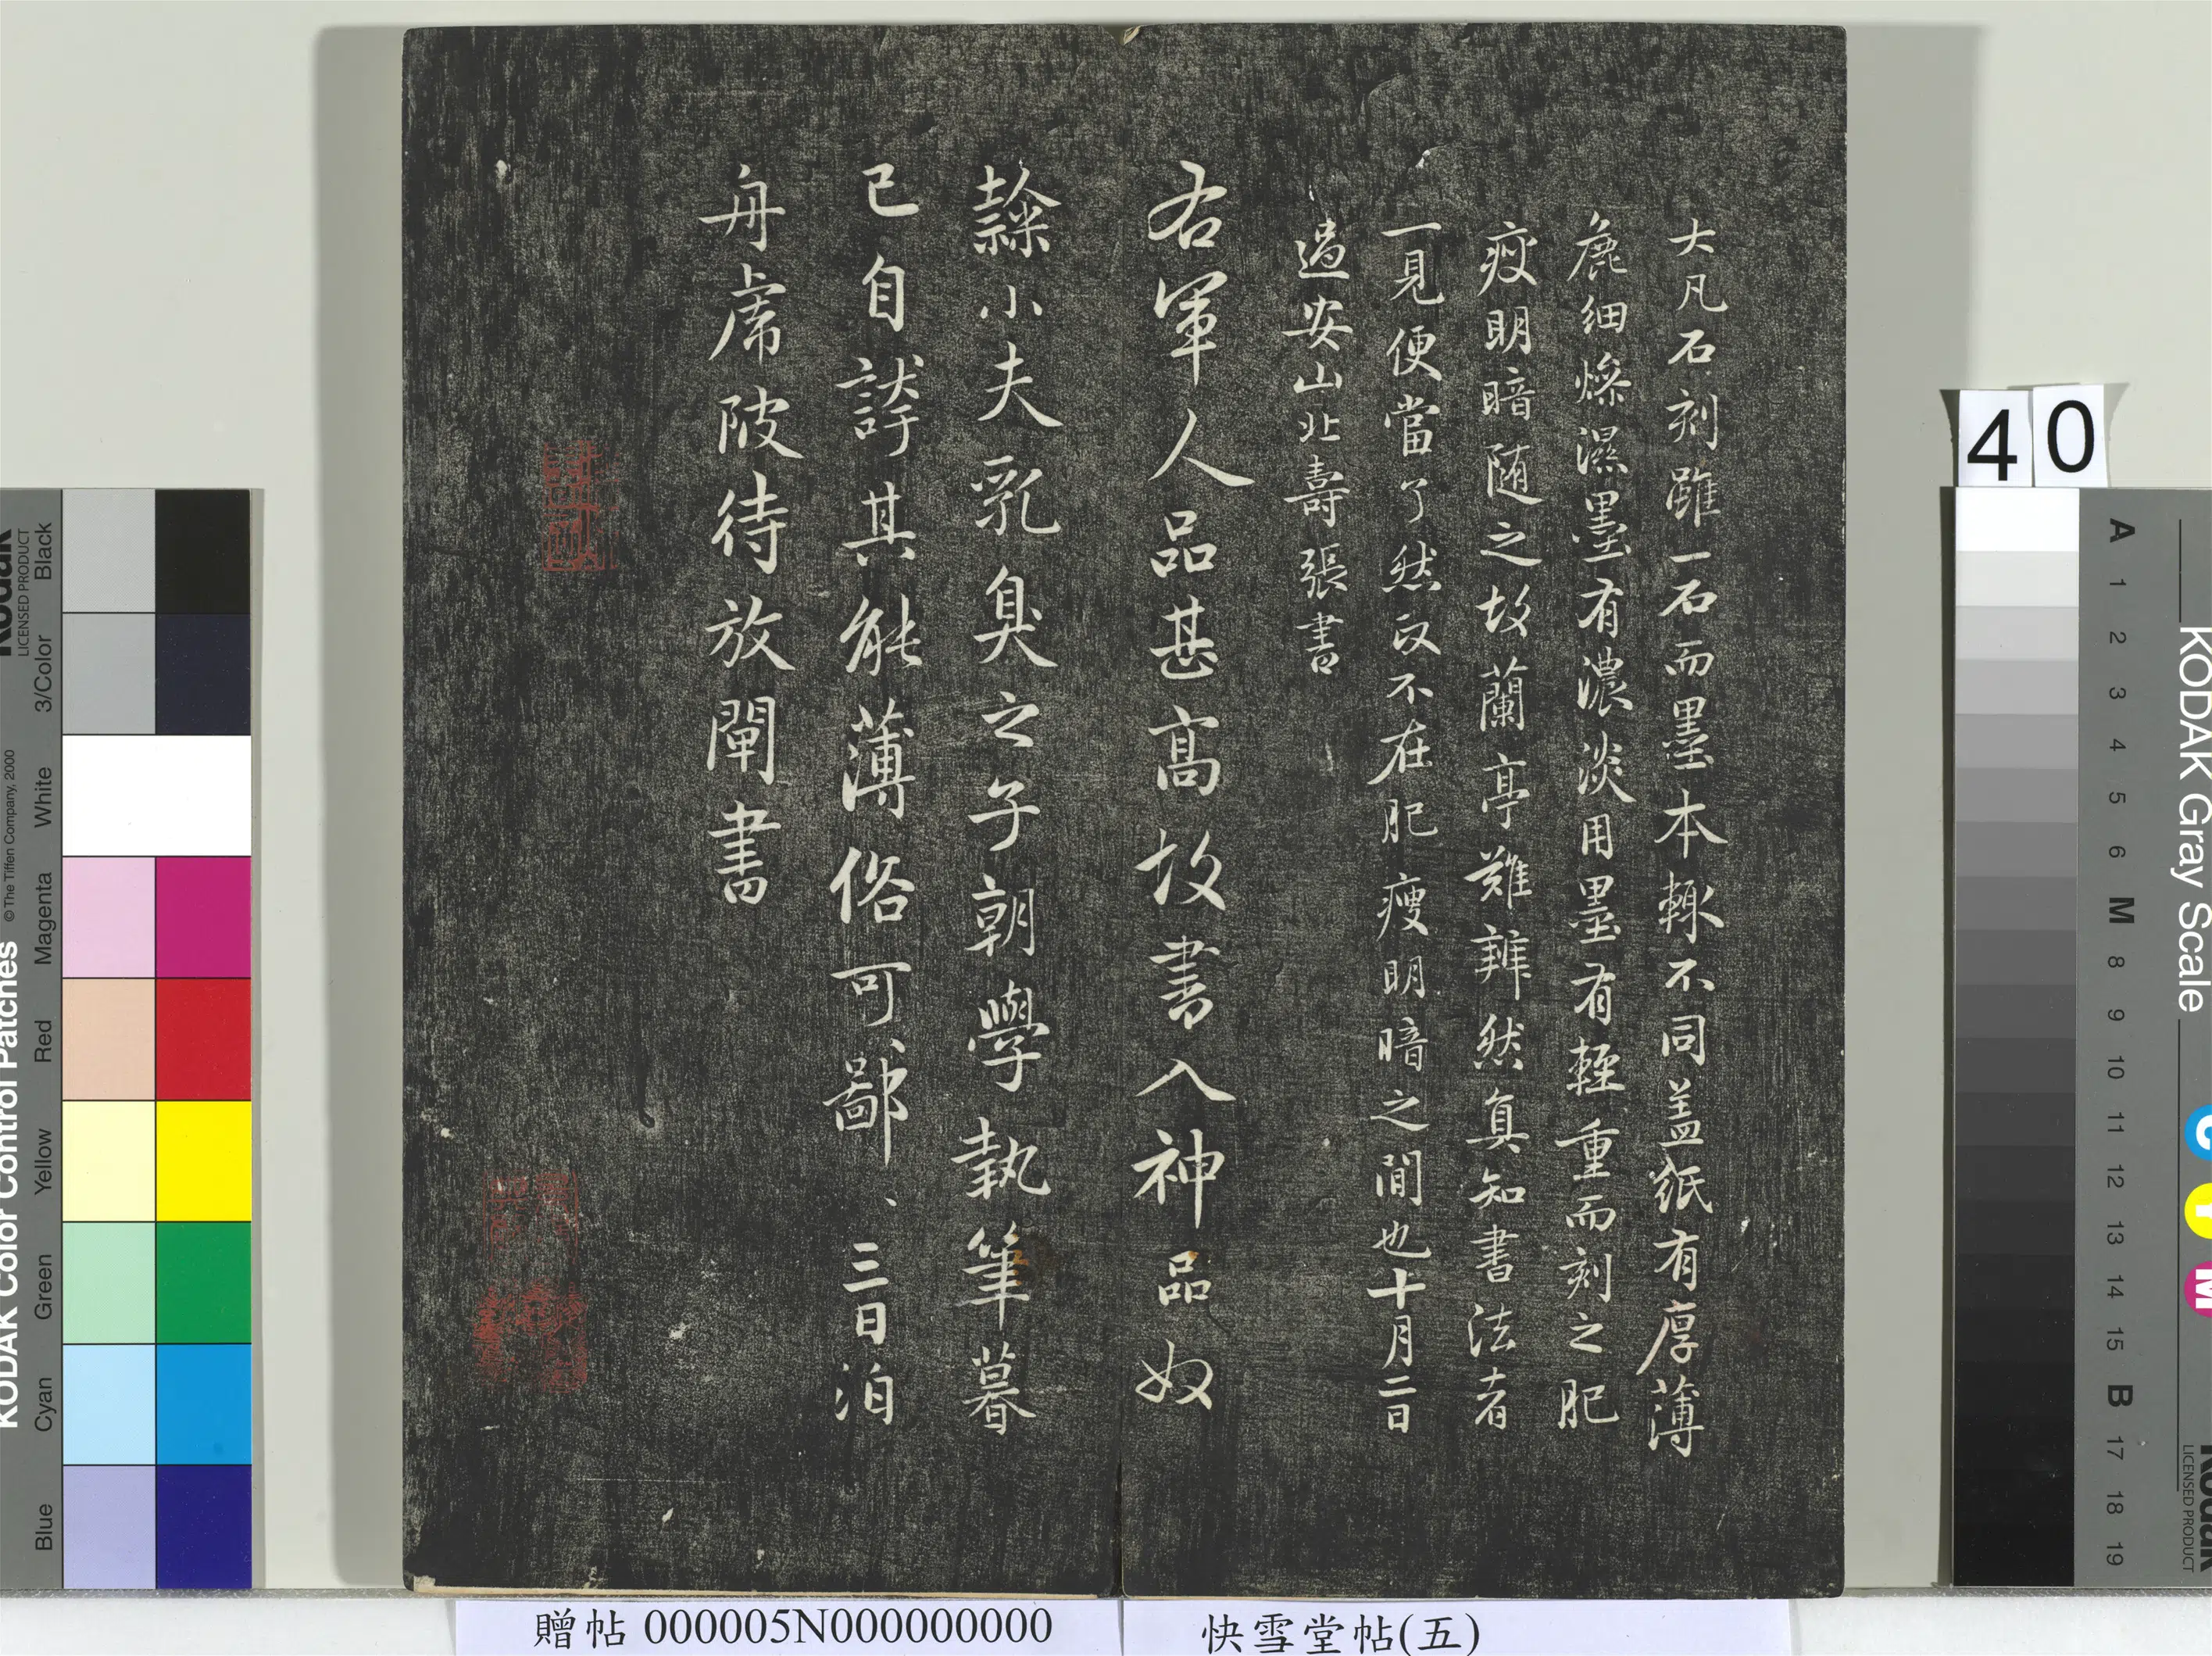 大凡石刻雖一石而墨本輙不同盖紙有厚薄
麁細燥濕墨有濃淡用墨有輕重而刻之肥
瘦明暗随之故蘭亭難辨然真知書法者
一見便當了然政不在肥瘦明暗之間也十月二日
過安山北壽張書
右軍人品甚高故書入神品奴
隸小夫乳臭之子朝學執筆暮
已自誇其能薄俗可鄙、三日泊
舟虎陂待放閘書
40
贈帖 000005N000000000
快雪堂帖(五)
KODAK Color Control Patches
© The Tiffen Company, 2000
Kodak
LICENSED PRODUCT
Blue
Cyan
Green
Yellow
Red
Magenta
White
3/Color
Black
KODAK Gray Scale
C
Y
M
Kodak
LICENSED PRODUCT
A 1 2 3 4 5 6 M 8 9 10 11 12 13 14 15 B 17 18 19